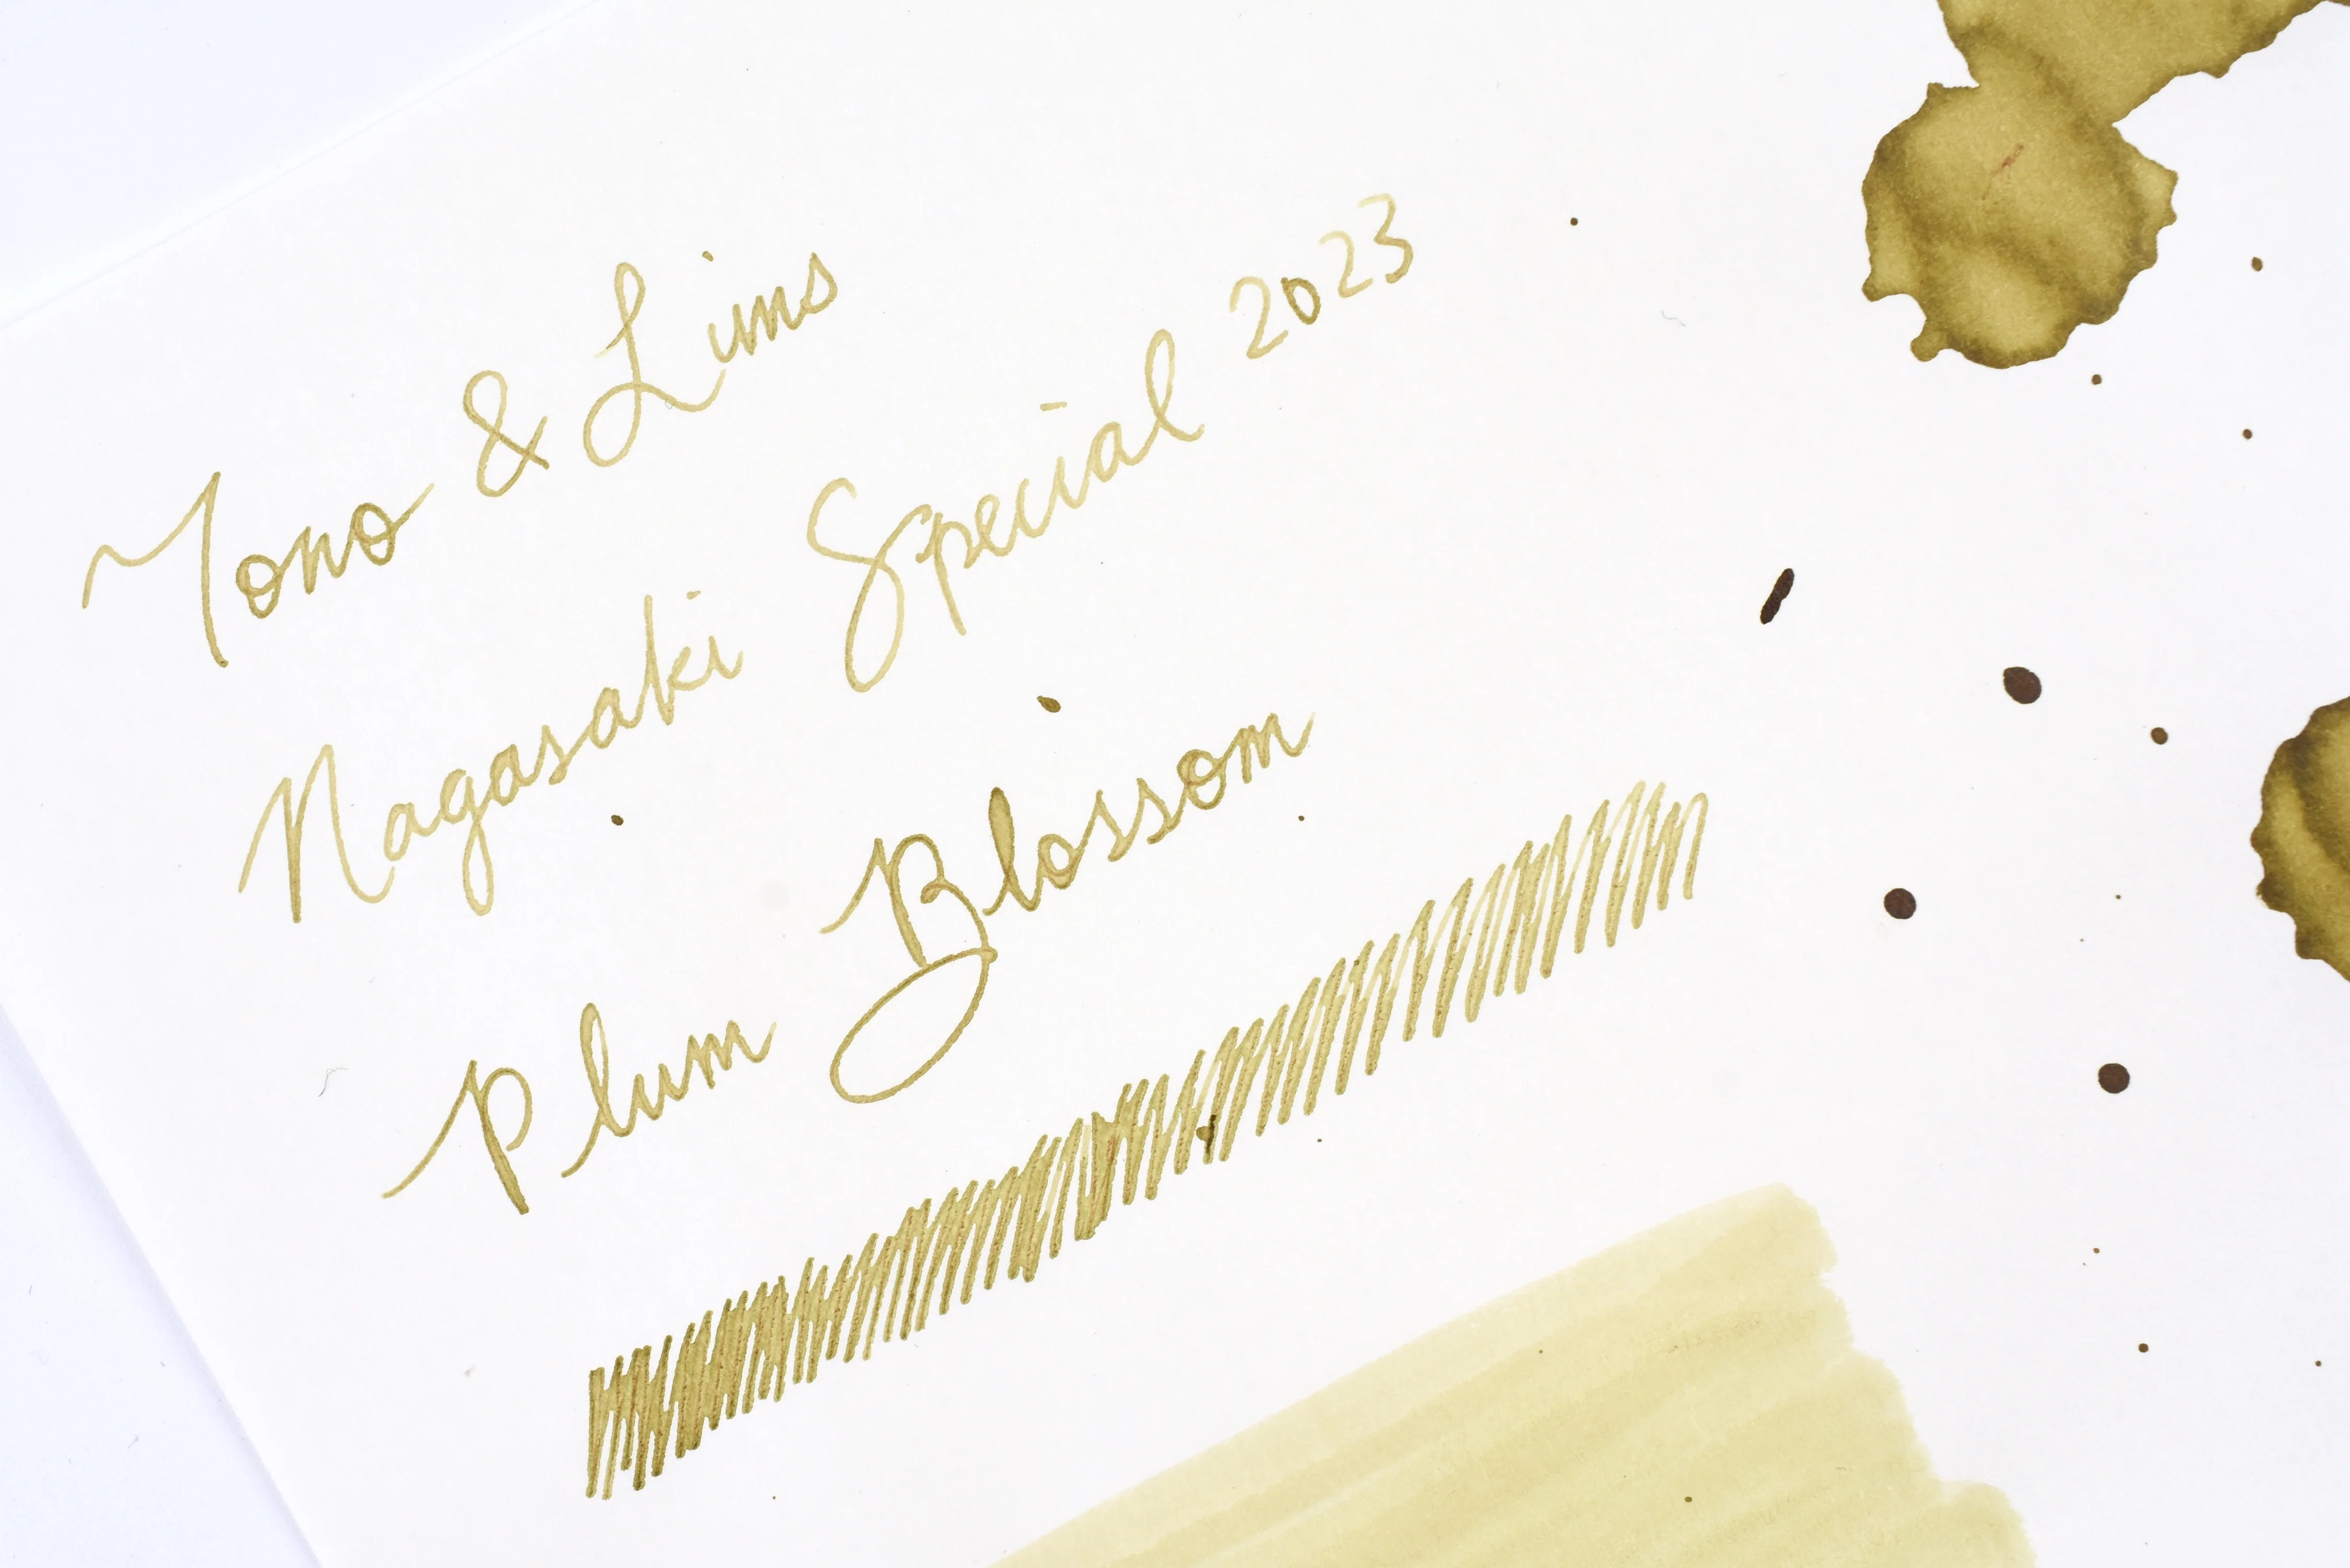 Tono & Lims
Nagasaki Special 2023
Plum Blossom